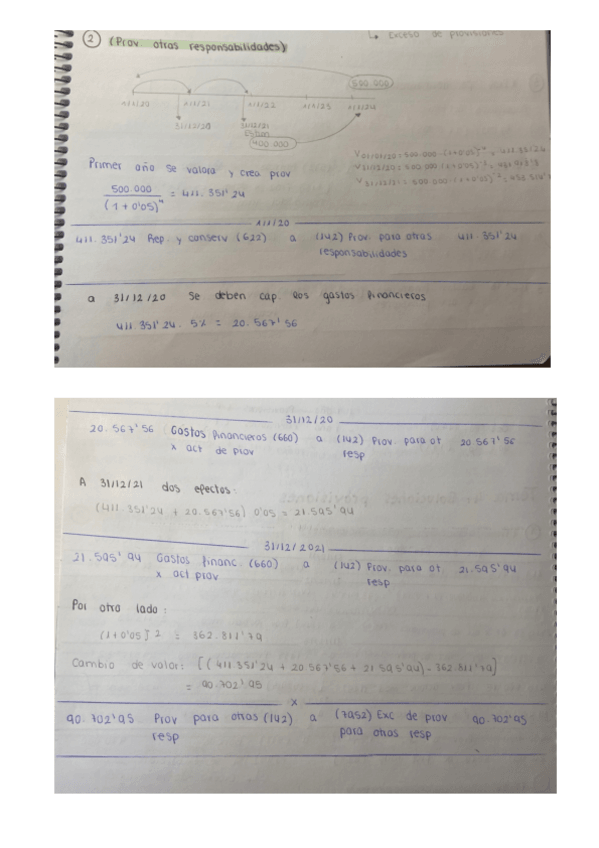 ↳ Exceso de provisiones
② (Prov otras responsabilidades)
500.000
1/1/20 1/1/21 1/1/22 1/1/23 1/1/24
31/12/20 31/12/21
400.000
Primer año se valora y crea prov
500.000 / (1+0'05)⁴ = 411.351'24
1/1/20
411.351'24 Rep. y conserv (622) a (142) Prov. para otras 411.351'24
responsabilidades
a 31/12/20 se deben cap. los gastos financieros
411.351'24 . 5% = 20.567'56
31/12/20
20.567'56 Gastos financieros (660) a (142) Prov. para ot 20.567'56
x act de prov resp
A 31/12/21 dos efectos:
(411.351'24 + 20.567'56) 0'05 = 21.595'94
31/12/2021
21.595'94 Gastos financ. (660) a (142) Prov. para ot. 21.595'94
x act prov resp
Por otro lado:
(1+0'05)² = 362.811'79
Cambio de valor: [(411.351'24 + 20.567'56 + 21.595'94) - 362.811'79]
= 90.702'95
x
90.702'95 Prov para otras (142) a (7952) Exc de prov 90.702'95
resp para otras resp